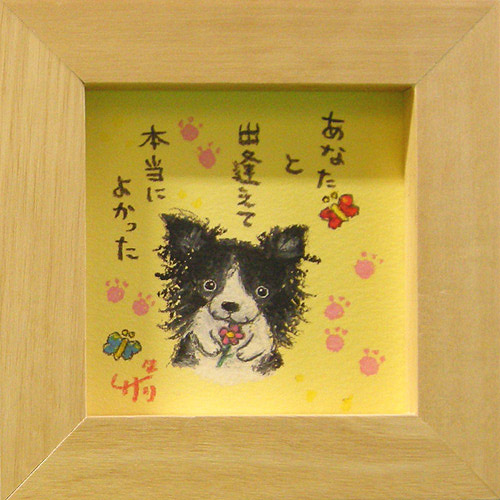 あなた
と
出逢えて
本当に
よかった